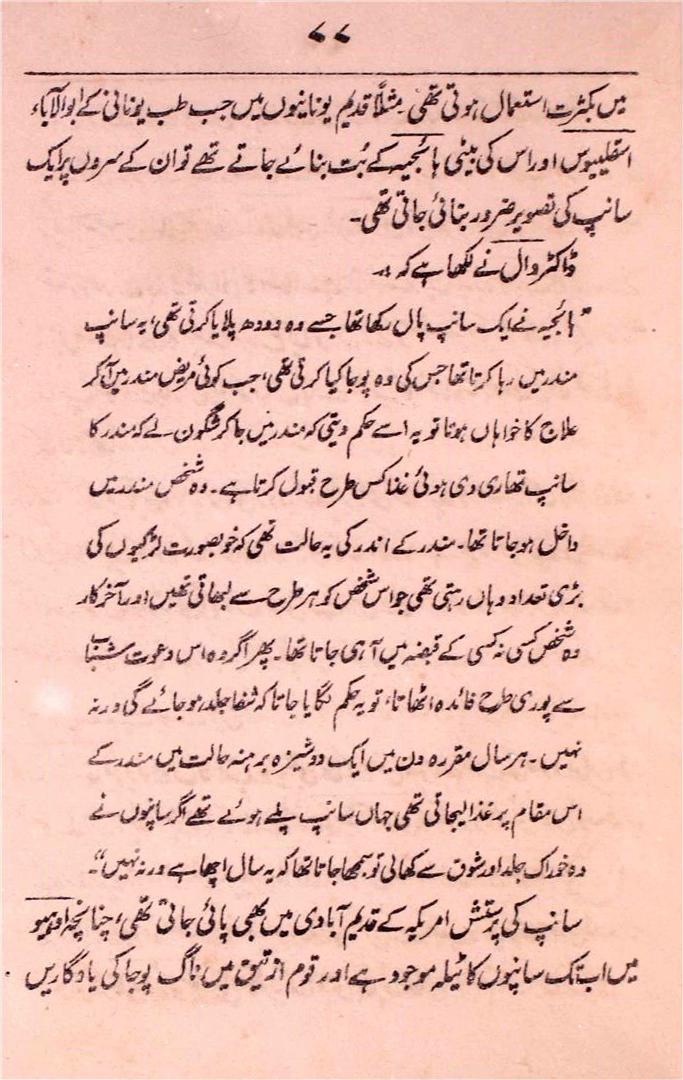 ۷۷
میں بکثرت استعمال ہوتی تھی۔ مثلاً قدیم یونانیوں میں جب طب یونانی کے ابوالآباء
اسقلیبوس اور اس کی بیٹی ہائجیہ کے بُت بنائے جاتے تھے تو ان کے سروں پر ایک
سانپ کی تصویر ضرور بنائی جاتی تھی۔
ڈاکٹر وال نے لکھا ہے کہ :۔
"ہائجیہ نے ایک سانپ پال رکھا تھا جسے وہ دودھ پلایا کرتی تھی، یہ سانپ
مندر میں رہا کرتا تھا جس کی وہ پوجا کیا کرتی تھی، جب کوئی مریض مندر میں آکر
علاج کا خواہاں ہوتا تو یہ اسے حکم دیتی کہ مندر میں جاکر شگون لے کہ مندر کا
سانپ تمھاری دی ہوئی غذا کس طرح قبول کرتا ہے۔ وہ شخص مندر میں
داخل ہوجاتا تھا۔ مندر کے اندر کی یہ حالت تھی کہ خوبصورت لڑکیوں کی
بڑی تعداد وہاں رہتی تھی جو اس شخص کو ہر طرح سے لبھاتی تھیں اور آخر کار
وہ شخص کسی نہ کسی کے قبضہ میں آہی جاتا تھا۔ پھر اگر وہ اس دعوت شباب
سے پوری طرح فائدہ اٹھاتا، تو یہ حکم لگایا جاتا کہ شفا جلد ہوجائے گی ورنہ
نہیں۔ ہر سال مقررہ دن میں ایک دوشیزہ برہنہ حالت میں مندر کے
اس مقام پر غذا لیجاتی تھی جہاں سانپ پلے ہوئے تھے اگر سانپوں نے
وہ خوراک جلد اور شوق سے کھالی تو سمجھا جاتا تھا کہ یہ سال اچھا ہے ورنہ نہیں"۔
سانپ کی پرستش امریکہ کے قدیم آبادی میں بھی پائی جاتی تھی، چنانچہ اوہیو
میں اب تک سانپوں کا ٹیلہ موجود ہے اور قوم ازتیق میں ناگ پوجا کی یادگاریں